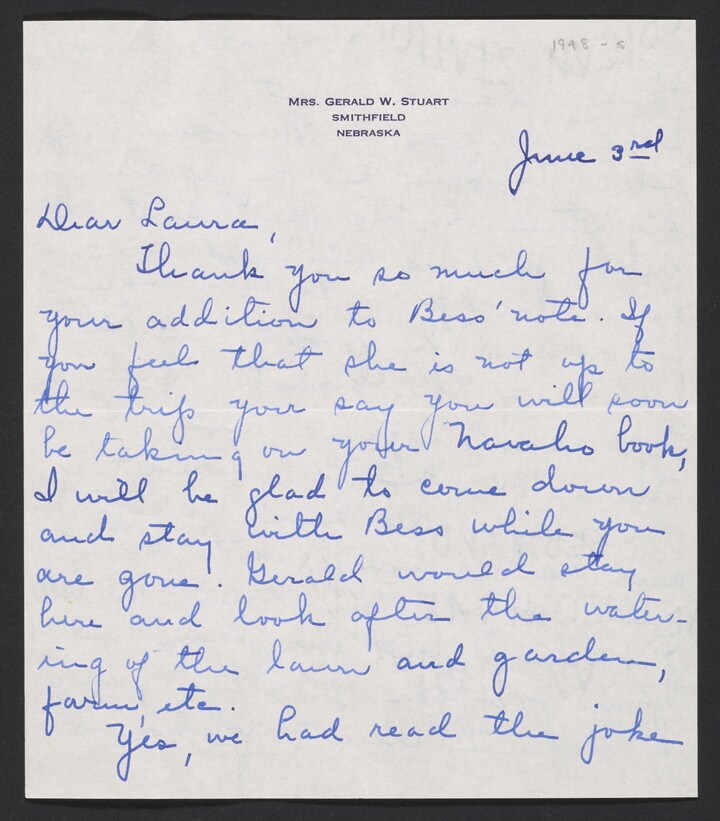 1948 - 5
MRS. GERALD W. STUART
SMITHFIELD
NEBRASKA
June 3rd
Dear Laura,
Thank you so much for
your addition to Bess' note. If
you feel that she is not up to
the trip your say you will soon
be taking on your Navaho book,
I will be glad to come down
and stay with Bess while you
are gone. Gerald would stay
here and look after the water-
ing of the lawn and garden,
farm, etc.
Yes, we had read the joke